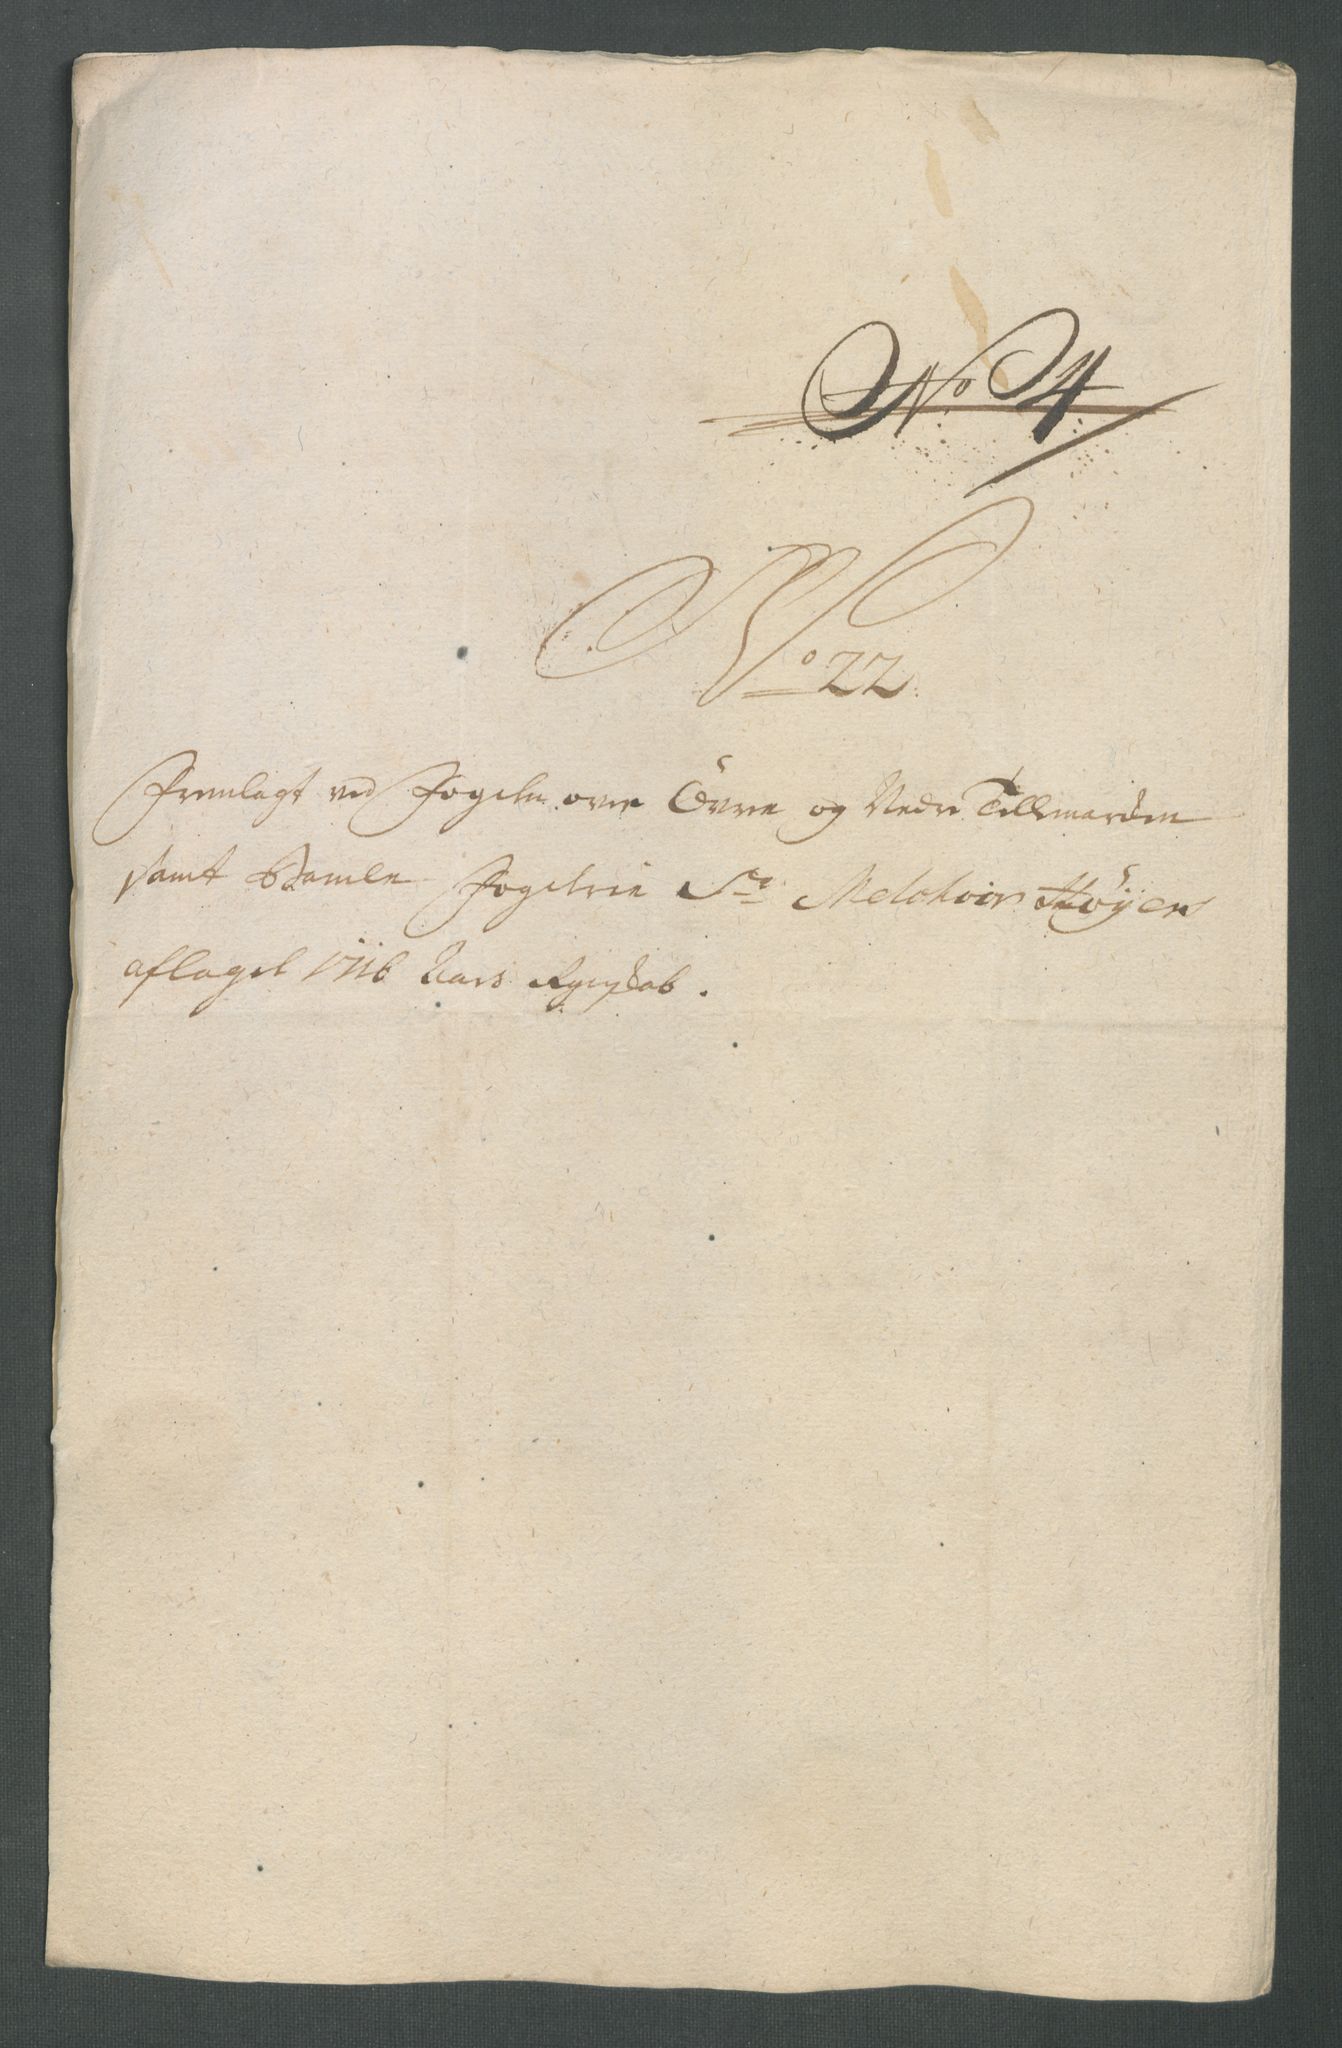 No 4
No 22
Fremlagt ved Fogeden over Övre og Nedre Tellemarcken
samt Bamle Fogderie Sr. Melchior Höyers
aflagde 1716 Aars Regnskab.